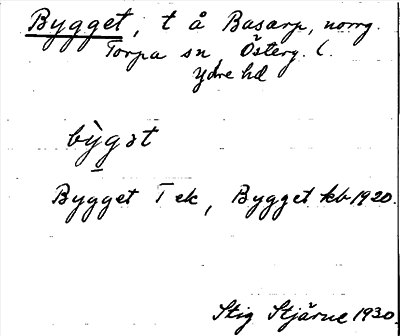 Bygget, t å Basarp, norrg.
Torpa sn, Österg. l.
Ydre hd
bỳgət
Bygget T ek, Bygget kb 1920.
Stig Stjärne 1930.